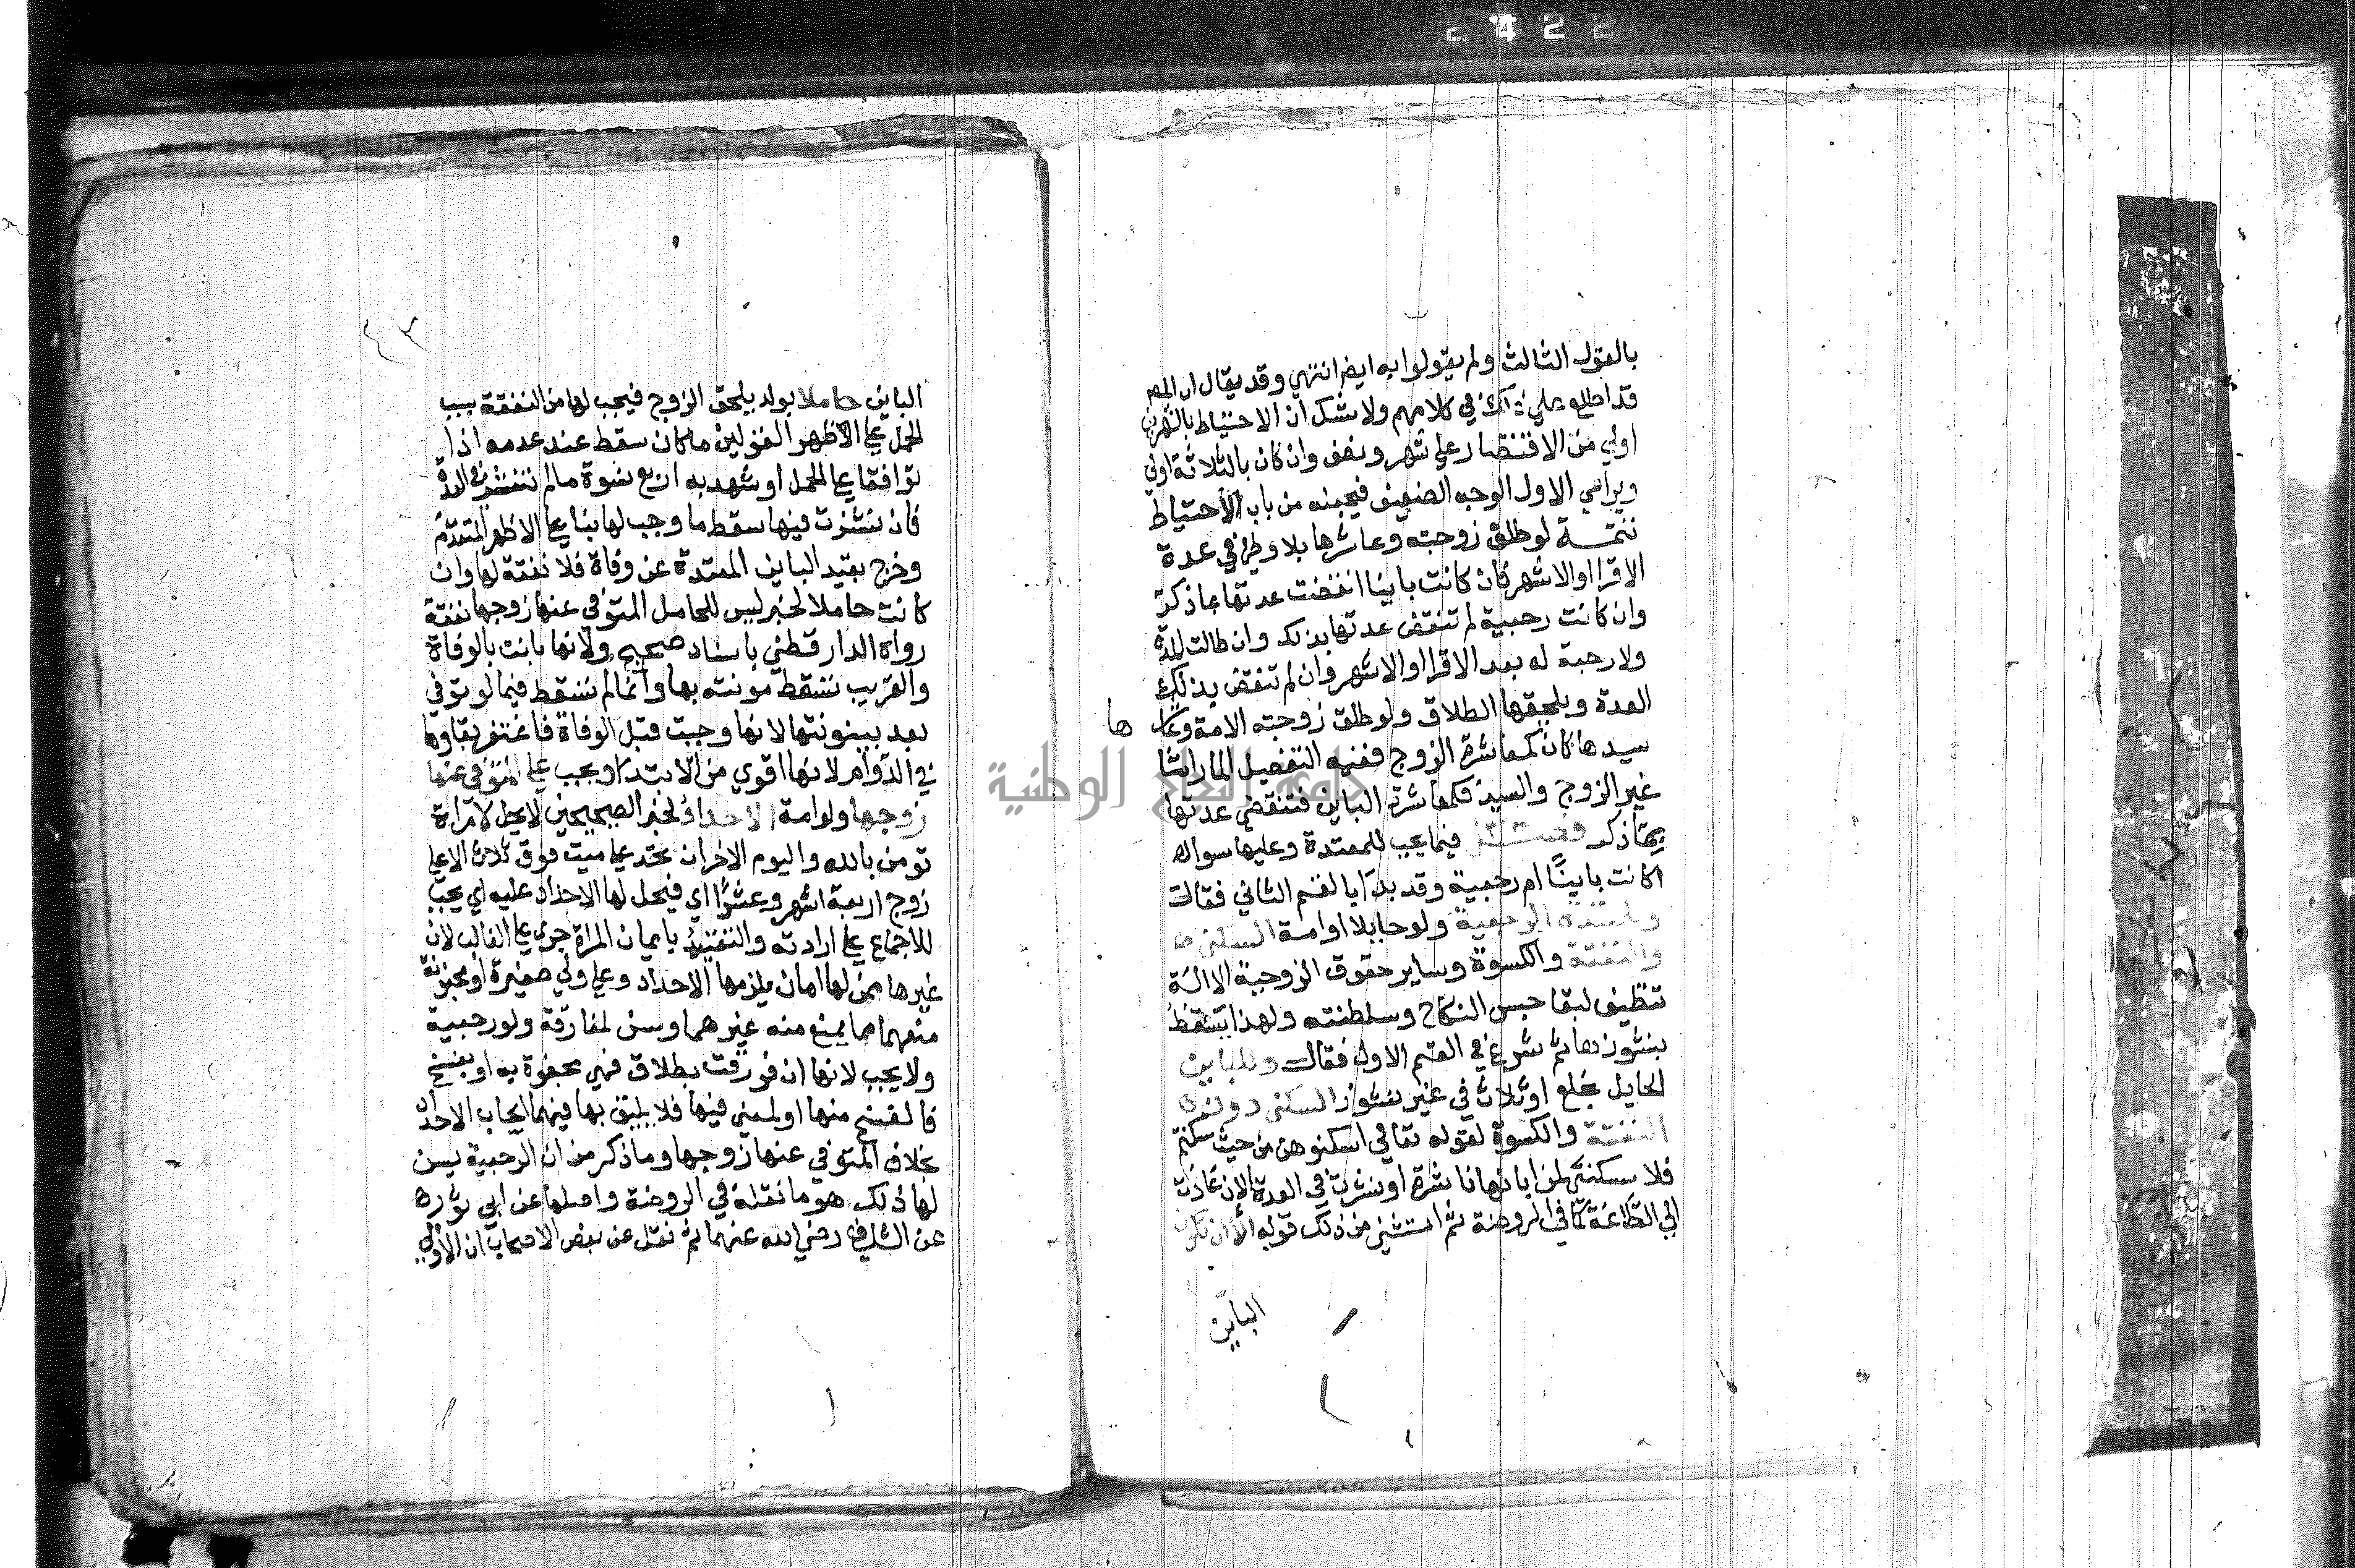 بالقول الثالث ولم يقولوا به ايضا انتهي وقد يقال ان المص
قد اطلع علي ذلك في كلامهم ولا شك ان الاحتياط بالشهرين
اولي من الاقتصار علي شهر ونصف وان كان بالثلاثة اولي
ويراعي الاول الوجه الضعيف فيجبنه من باب الاحتياط
تتمــة لو طلق زوجته وعاشرها بلا وطئ في عدة
الاقرا او الاشهر فان كانت باينا انقضت عدتها بما ذكر
وان كانت رجعية لم تنقض عدتها بذلك وان طالت المدة
ولا رجعة له بعد الاقرا او الاشهر وان لم تنقض بذلك
العدة ويلحقها الطلاق ولو طلق زوجته الامة وعاشرها
سيدها كان كمعاشرة الزوج ففيه التفصيل المار اما
غير الزوج والسيد فكمعاشرة البائن فتنقضي عدتها
بما ذكر فصــل فيما يجب للمعتدة وعليها سواء
اكانت باينًا ام رجعية وقد بدا بالقسم الثاني فقال
وللمعتدة الرجعية ولو حايلا او امة السكني
والنفقة والكسوة وساير حقوق الزوجية الا الة
تنظيف لبقا حبس النكاح وسلطنته ولهذا يسقط
بنشوزها ثم شرع في القسم الاول فقال وللباين
الحايل بخلع او ثلاث في غير نشوز السكني دون
النفقة والكسوة لقوله تعالي اسكنوهن من حيث سكنتم
فلا سكني لمن ابانها ناشزة او نشزت في العدة الا ان عادت
الي الطاعة كما في الروضة ثم استثني من ذلك قوله الا ان تكون
الباين
٤٣
الباين حاملا بولد يلحق الزوج فيجب لها من النفقة بسبب
الحمل علي الاظهر القولين ما كان سقط عند عدمه اذا
توافقا علي الحمل او شهد به اربع نسوة ما لم تنشز في العدة
فان نشزت فيها سقط ما وجب لها بنا علي الاظهر المتقدم
وخرج بقيد الباين المعتدة عن وفاة فلا نفقة لها وان
كانت حاملا لخبر ليس للحامل المتوفي عنها زوجها نفقة
رواه الدار قطني باسناد صحيح ولانها بانت بالوفاة
والقريب تسقط مونته بها وانما لم تسقط فيما لو توفي
بعد بينونتها لانها وجبت قبل الوفاة فاغتفر بقاوها
في الدوام لانها اقوي من الابتدا ويجب علي المتوفي عنها
زوجها ولو امة الاحداد لخبر الصحيحين لا يحل لامراة
تومن بالله واليوم الاخر ان تحد علي ميت فوق ثلاث الا علي
زوج اربعة اشهر وعشرًا اي فيحل لها الاحداد عليه اي يجب
للاجماع علي ارادته والتقييد بايمان المراة جري علي الغالب لان
غيرها ممن لها امان يلزمها الاحداد وعلي ولي صغيرة او مجنونة
منعهما مما يمنع منه غيرهما وسن لمفارقة ولو رجعية
ولا يجب لانها ان فورقت بطلاق فهي مجفوة به او بفسخ
فالفسخ منها او لمعني فيها فلا يليق بها فيهما ايجاب الاحداد
بخلاف المتوفي عنها زوجها وما ذكر من ان الرجعية يسن
لها ذلك هو ما نقله في الروضة واصلها عن ابي ثور
عن الشافعي رضي الله عنهما ثم نقل عن بعض الاصحاب ان الاولي